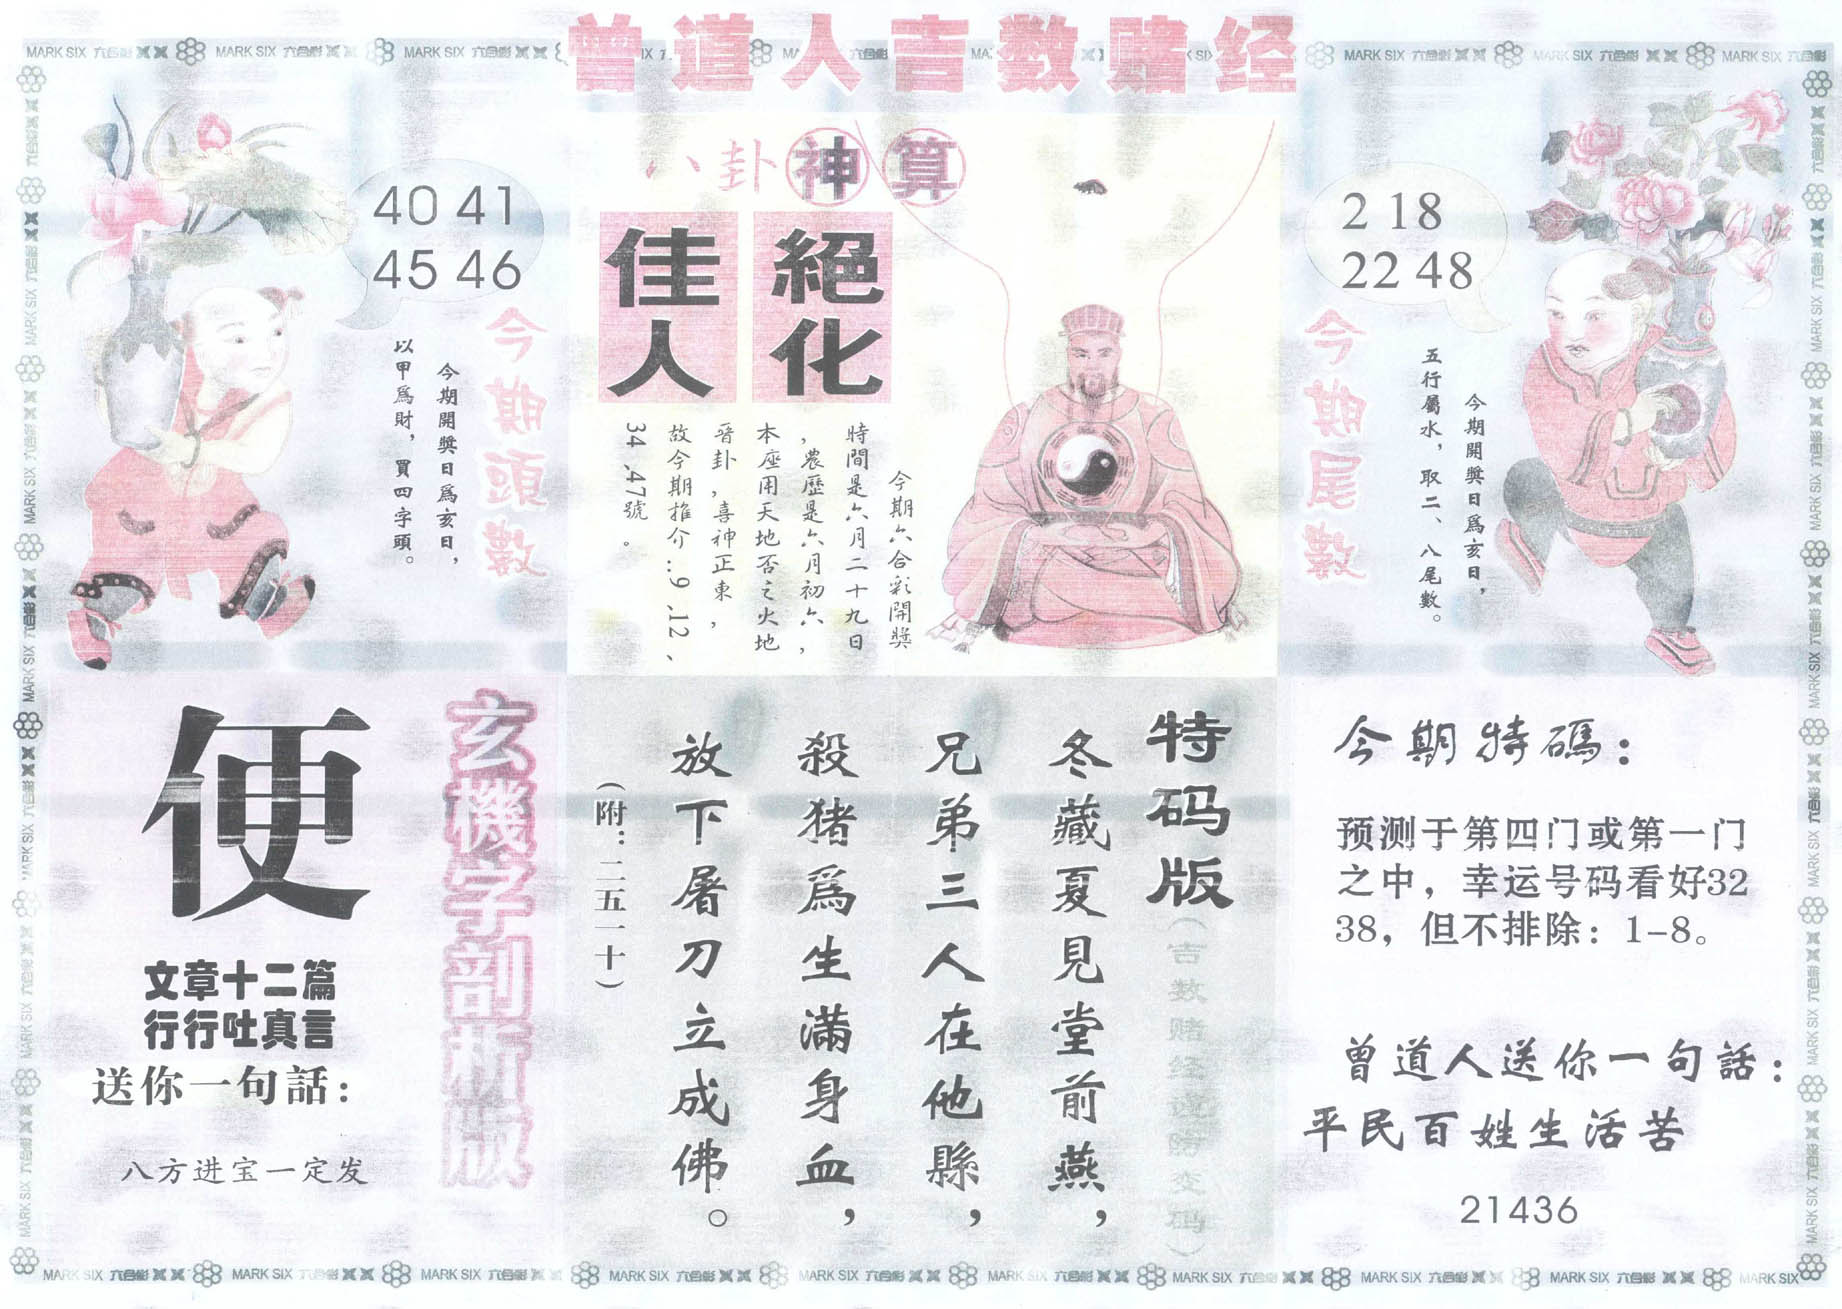 曾道人吉数赌经
MARK SIX 六合彩
八卦神算
40 41
45 46
今期頭數
今期開獎日爲亥日，
以甲爲財，買四字頭。
絕化
佳人
今期六合彩開獎
時間是六月二十九日
，農歷是六月初六，
本座用天地否之火地
晉卦，喜神正東，
故今期推介..9.12、
34.47號。
2 18
22 48
今期尾數
今期開獎日爲亥日，
五行屬水，取二、八尾數。
玄機字剖析版
便
文章十二篇
行行吐真言
送你一句話：
八方进宝一定发
特码版
（吉数赌经
变码）
冬藏夏見堂前燕，
兄弟三人在他縣，
殺猪爲生滿身血，
放下屠刀立成佛。
（附：二五一十）
今期特碼：
预测于第四门或第一门
之中，幸运号码看好32
38，但不排除：1-8。
曾道人送你一句話：
平民百姓生活苦
21436